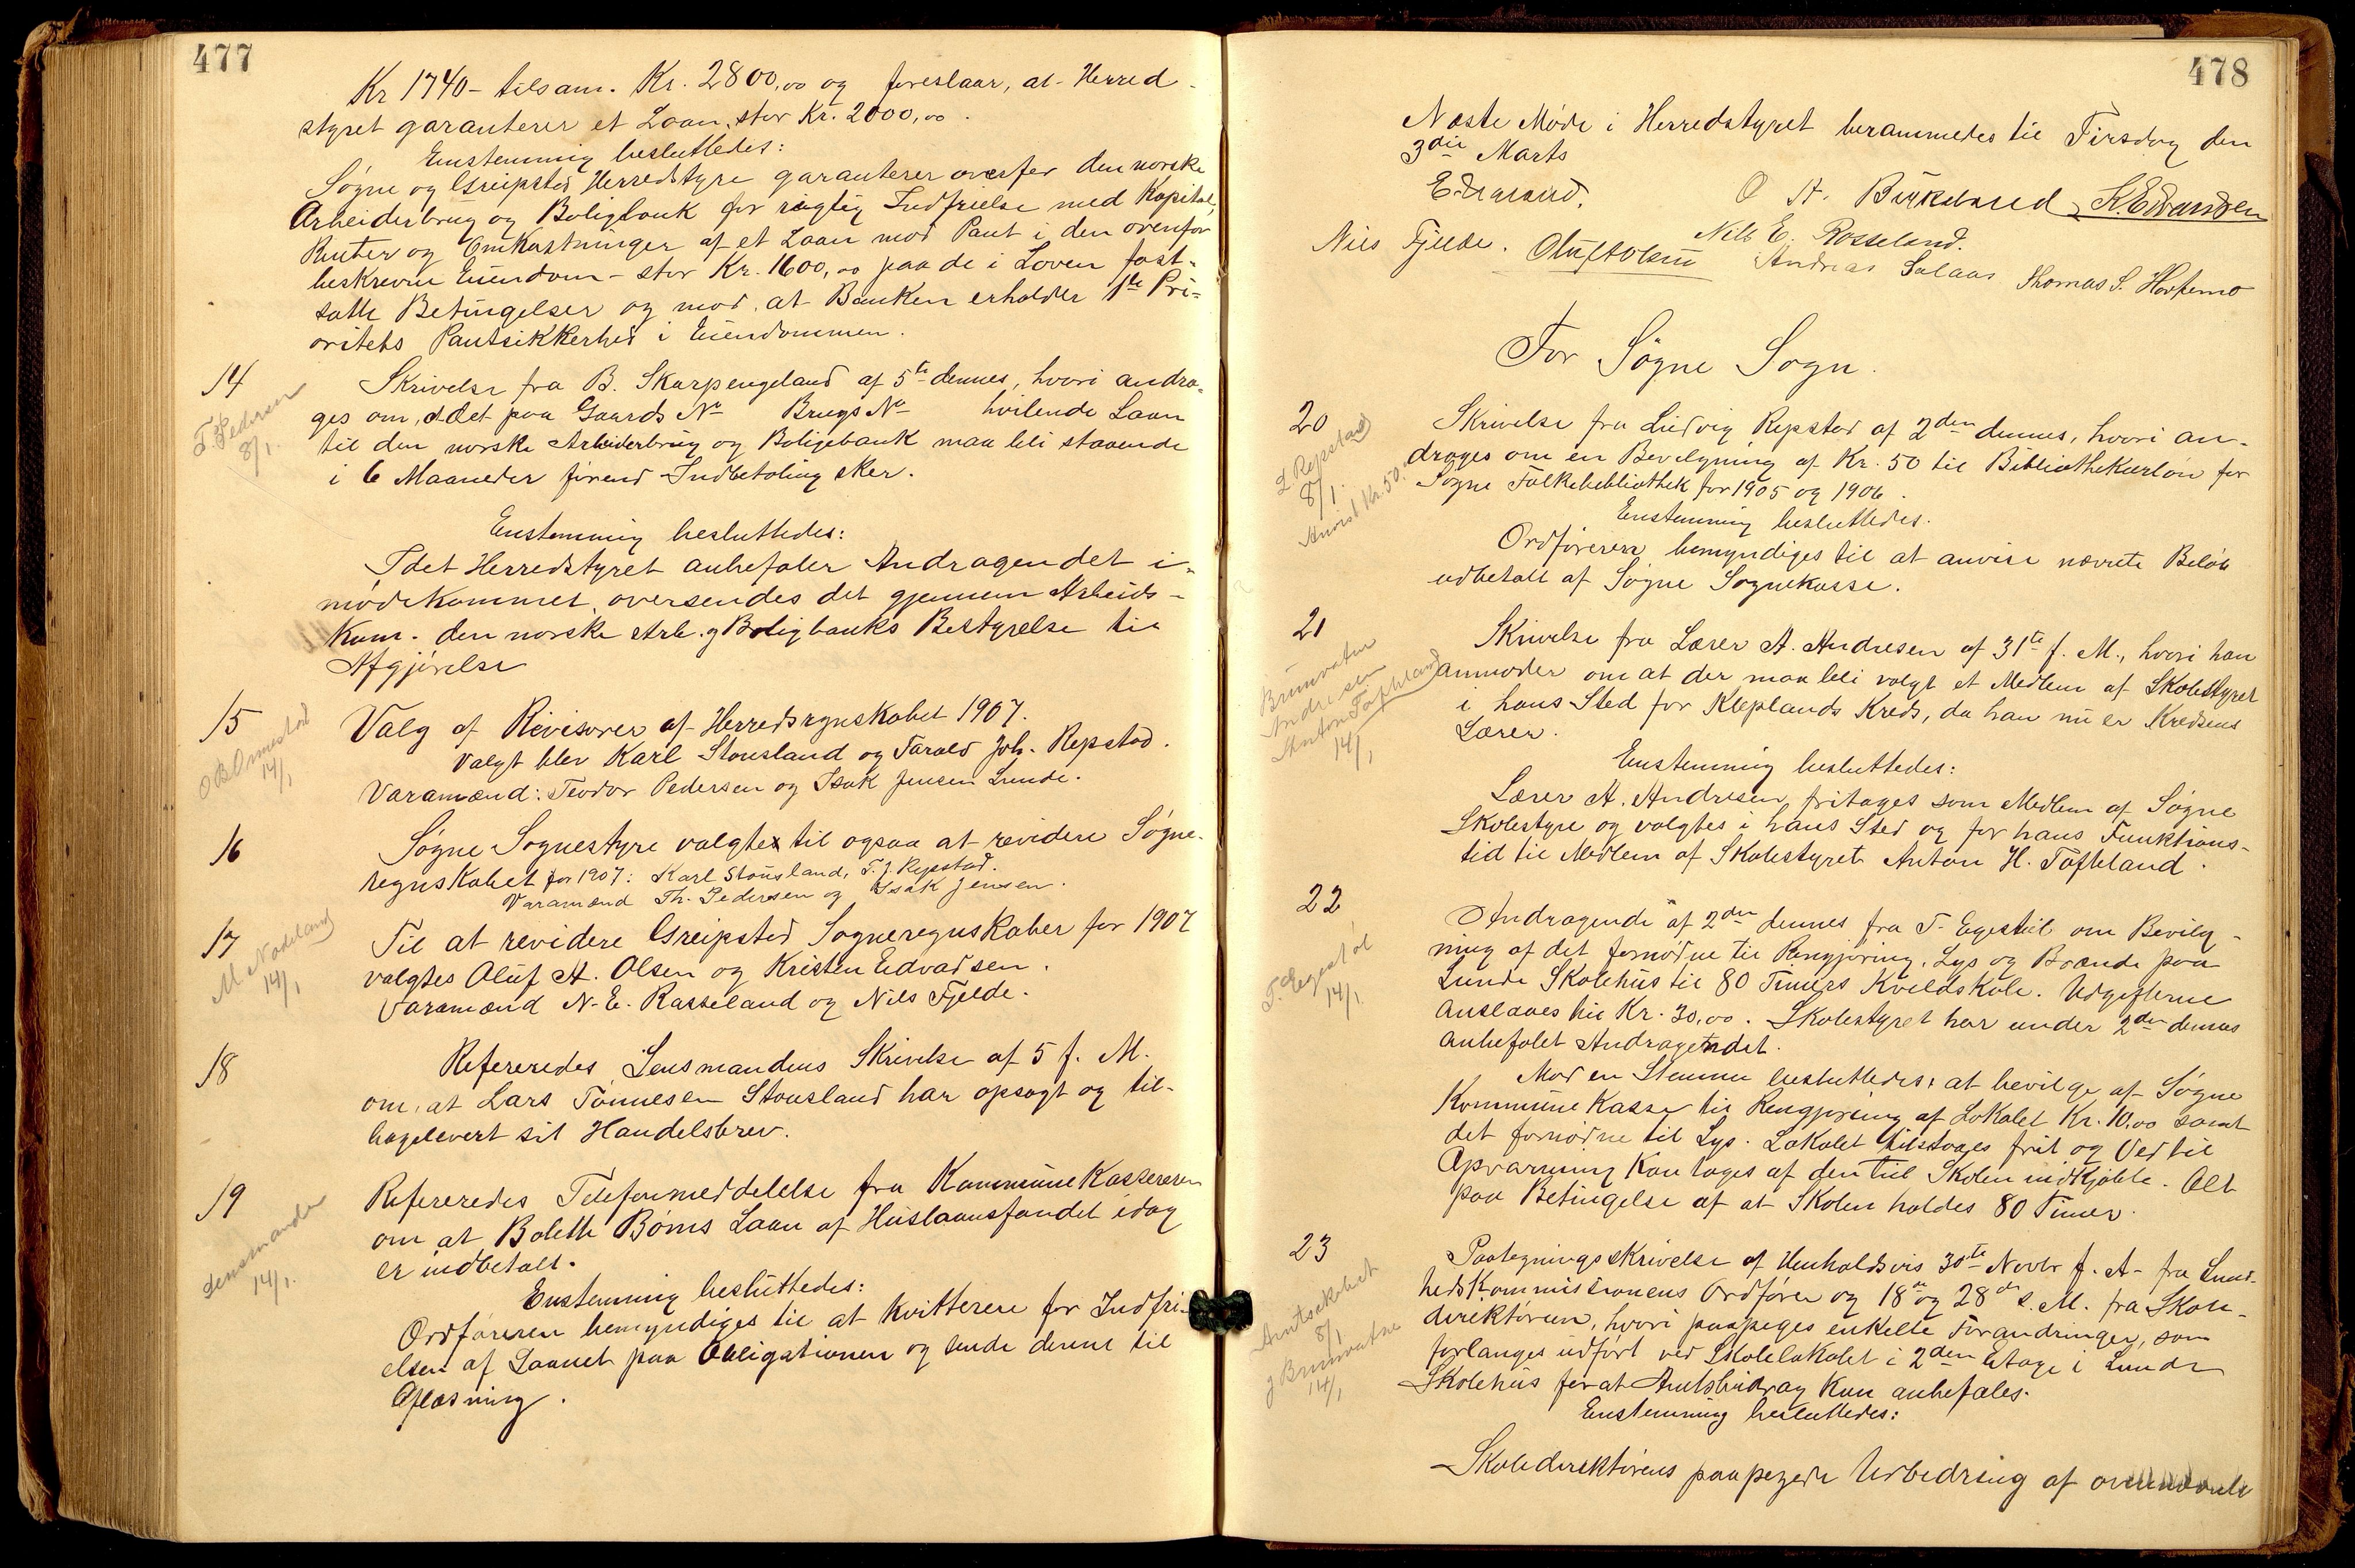 477
Kr 1740 - tilsam. Kr. 2800,00 og foreslaar, at Herred-
styret garanterer et Laan, stor Kr. 2000,00.
Enstemmig besluttedes:
Søgne og Greipsted Herredstyre garanterer overfor den norske
Arbeiderbrug og Boligbank for rigtig Indfrielse med Kapital,
Renter og Omkostninger af et Laan mod Pant i den ovenfor
beskrevne Eiendom - stor Kr. 1600,00 paa de i Loven fast-
satte Betingelser og mod, at Banken erholder 1ste Pri-
oritets Pantsikkerhed i Eiendommen.
14
T. Pedersen
8/1.
Skrivelse fra B. Skarpengeland af 5te dennes, hvori andra-
ges om, at det paa Gaards No Brugs No hvilende Laan
til den norske Arbeiderbrug og Boligebank maa bli staaende
i 6 Maaneder førend Indbetaling sker.
Enstemmig besluttedes:
Idet Herredstyret anbefaler Andragendet i-
mødekommet, oversendes det gjennem Arbeids-
Kom. den norske Arb. og Boligbanks Bestyrelse til
Afgjørelse
15
O B Omestad
14/1
Valg af Revisorer af Herredsregnskabet 1907.
Valgt blev Karl Stousland og Tarald Joh. Repstad.
Varamænd: Teodor Pedersen og Isak Jensen Lunde.
16
Søgne Sognestyre valgtes til ogsaa at revidere Søgne-
regnskabet for 1907: Karl Stousland, T. J. Repstad.
Varamænd Th. Pedersen og Isak Jensen.
17
M Nodeland
14/1
Til at revidere Greipsted Sogneregnskaber for 1907
valgtes Oluf A. Olsen og Kristen Edvardsen.
Varamænd N. E. Rosseland og Nils Fjelde.
18
Refereredes Lensmandens Skrivelse af 5 f. M.
om, at Lars Tønnesen Stousland har opsagt og til-
bagelevert sit Handelsbrev.
19
Lensmanden
14/1.
Refereredes Telefonmeddelelse fra Kommunekassereren
om at Bolette Bøms Laan af Huslaansfondet idag
er indbetalt.
Enstemmig besluttedes:
Ordføreren bemyndiges til at kvitterere for Indfri-
elsen af Laanet paa Obligationen og sende denne til
Aflæsning.
478
Næste Møde i Herredstyret berammedes til Tirsdag den
3die Marts
O A. Birkeland K. Edvardsen
Nils E. Rosseland.
Nils Fjelde. Oluf A Olsen Andreas Salaas Thomas S. Hortemo
For Søgne Sogn.
20
L Repstad
8/1.
Anvist Kr. 50.
Skrivelse fra Ludvig Repstad af 2den dennes, hvori an-
drages om en Bevilgning af Kr. 50 til Bibliothekarløn for
Søgne Folkebibliothek for 1905 og 1906.
Enstemmig besluttedes.
Ordføreren bemyndiges til at anvise nævnte Beløb
udbetalt af Søgne Sognekasse.
21
Brunvatne
Andresen
Anton Tofteland
14/1
Skrivelse fra Lærer A. Andresen af 31te f. M., hvori han
anmoder om at der maa bli valgt et Medlem af Skolestyret
i hans Sted for Kleplands Kreds, da han nu er Kredsens
Lærer.
Enstemmig besluttedes:
Lærer A. Andresen fritages som Medlem af Søgne
Skolestyre og valgtes i hans Sted og for hans Funktions-
tid til Medlem af Skolestyret Anton H. Tofteland.
22
T. Egestøl
14/1
Andragende af 2den dennes fra T. Egestøl om Bevilg-
ning af det fornødne til Rengjøring, Lys og Brænde paa
Lunde Skolehus til 80 Timers Kveldskole. Udgifterne
anslaaes til Kr. 30,00. Skolestyret har under 2den dennes
anbefalet Andragendet.
Mod en Stemme besluttedes: at bevilge af Søgne
Kommunekasse til Rengjøring af Lokalet Kr. 10,00 samt
det fornødne til Lys. Lokalet tilstaaes frit og Ved til
Opvarming kan tages af den til Skolen indkjøbte. Alt
paa Betingelse af at Skolen holdes 80 Timer.
23
Amtsskolest
8/1
g Brunvatne
14/1
Paategningsskrivelse af Henholdsvis 30te Novbr f. A. fra Sund-
hedskommissionens Ordfører og 18de og 28de s. M. fra Skole-
direktøren, hvori paapeges enkelte Forandringer, som
forlanges udført ved Skolelokalet i 2den Etage i Lunde
Skolehus for at Amtsbidrag kan anbefales.
Enstemmig besluttedes:
Skoledirektørens paapegede Udbedring af ovennævnte